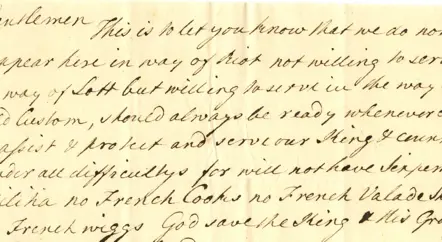 entlemen This is to let you know that we do no
apear here in way of Riot not willing to ser
way of Lott but willing to serve in the way
d Custom, should always be ready whenever
assist & protect and serve our King & coun
nder all difficultys for will not have Sixpen
ilitia no French Cooks no French Valade S
French wiggs God save the King & His Gr